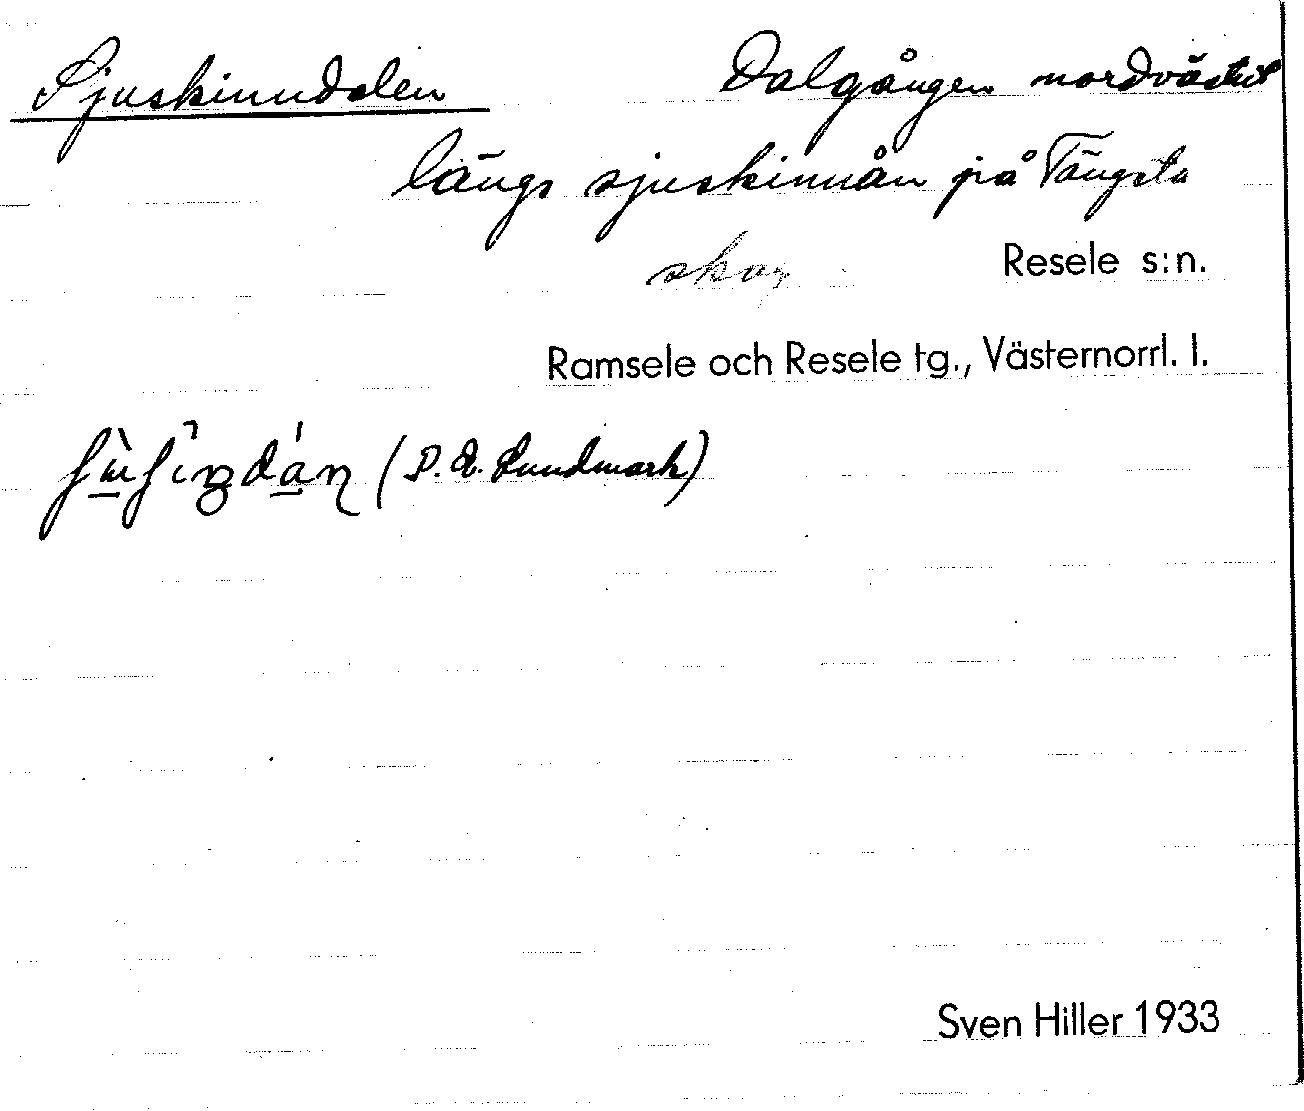 Sjuskinndalen Dalgången nordvästut
längs sjuskinnån på Tängsta
skog Resele s:n.
Ramsele och Resele tg., Västernorrl. l.
(P. A. Lundmark)
Sven Hiller 1933